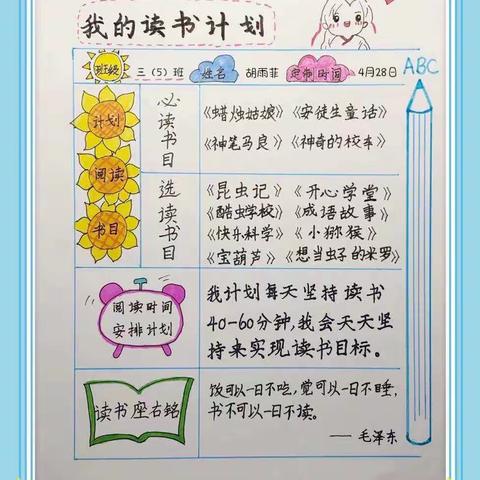 我的读书计划
ABC
班级 三(5)班 姓名 胡雨菲 定制时间 4月28日
计划
阅读
书目
必读书目
《蜡烛姑娘》《安徒生童话》
《神笔马良》《神奇的校车》
选读书目
《昆虫记》《开心学堂》
《酷虫学校》《成语故事》
《快乐科学》《小猕猴》
《宝葫芦》《想当虫子的米罗》
阅读时间
安排计划
我计划每天坚持读书
40-60分钟,我会天天坚
持来实现读书目标。
读书座右铭
饭可以一日不吃,觉可以一日不睡,
书不可以一日不读。
——毛泽东